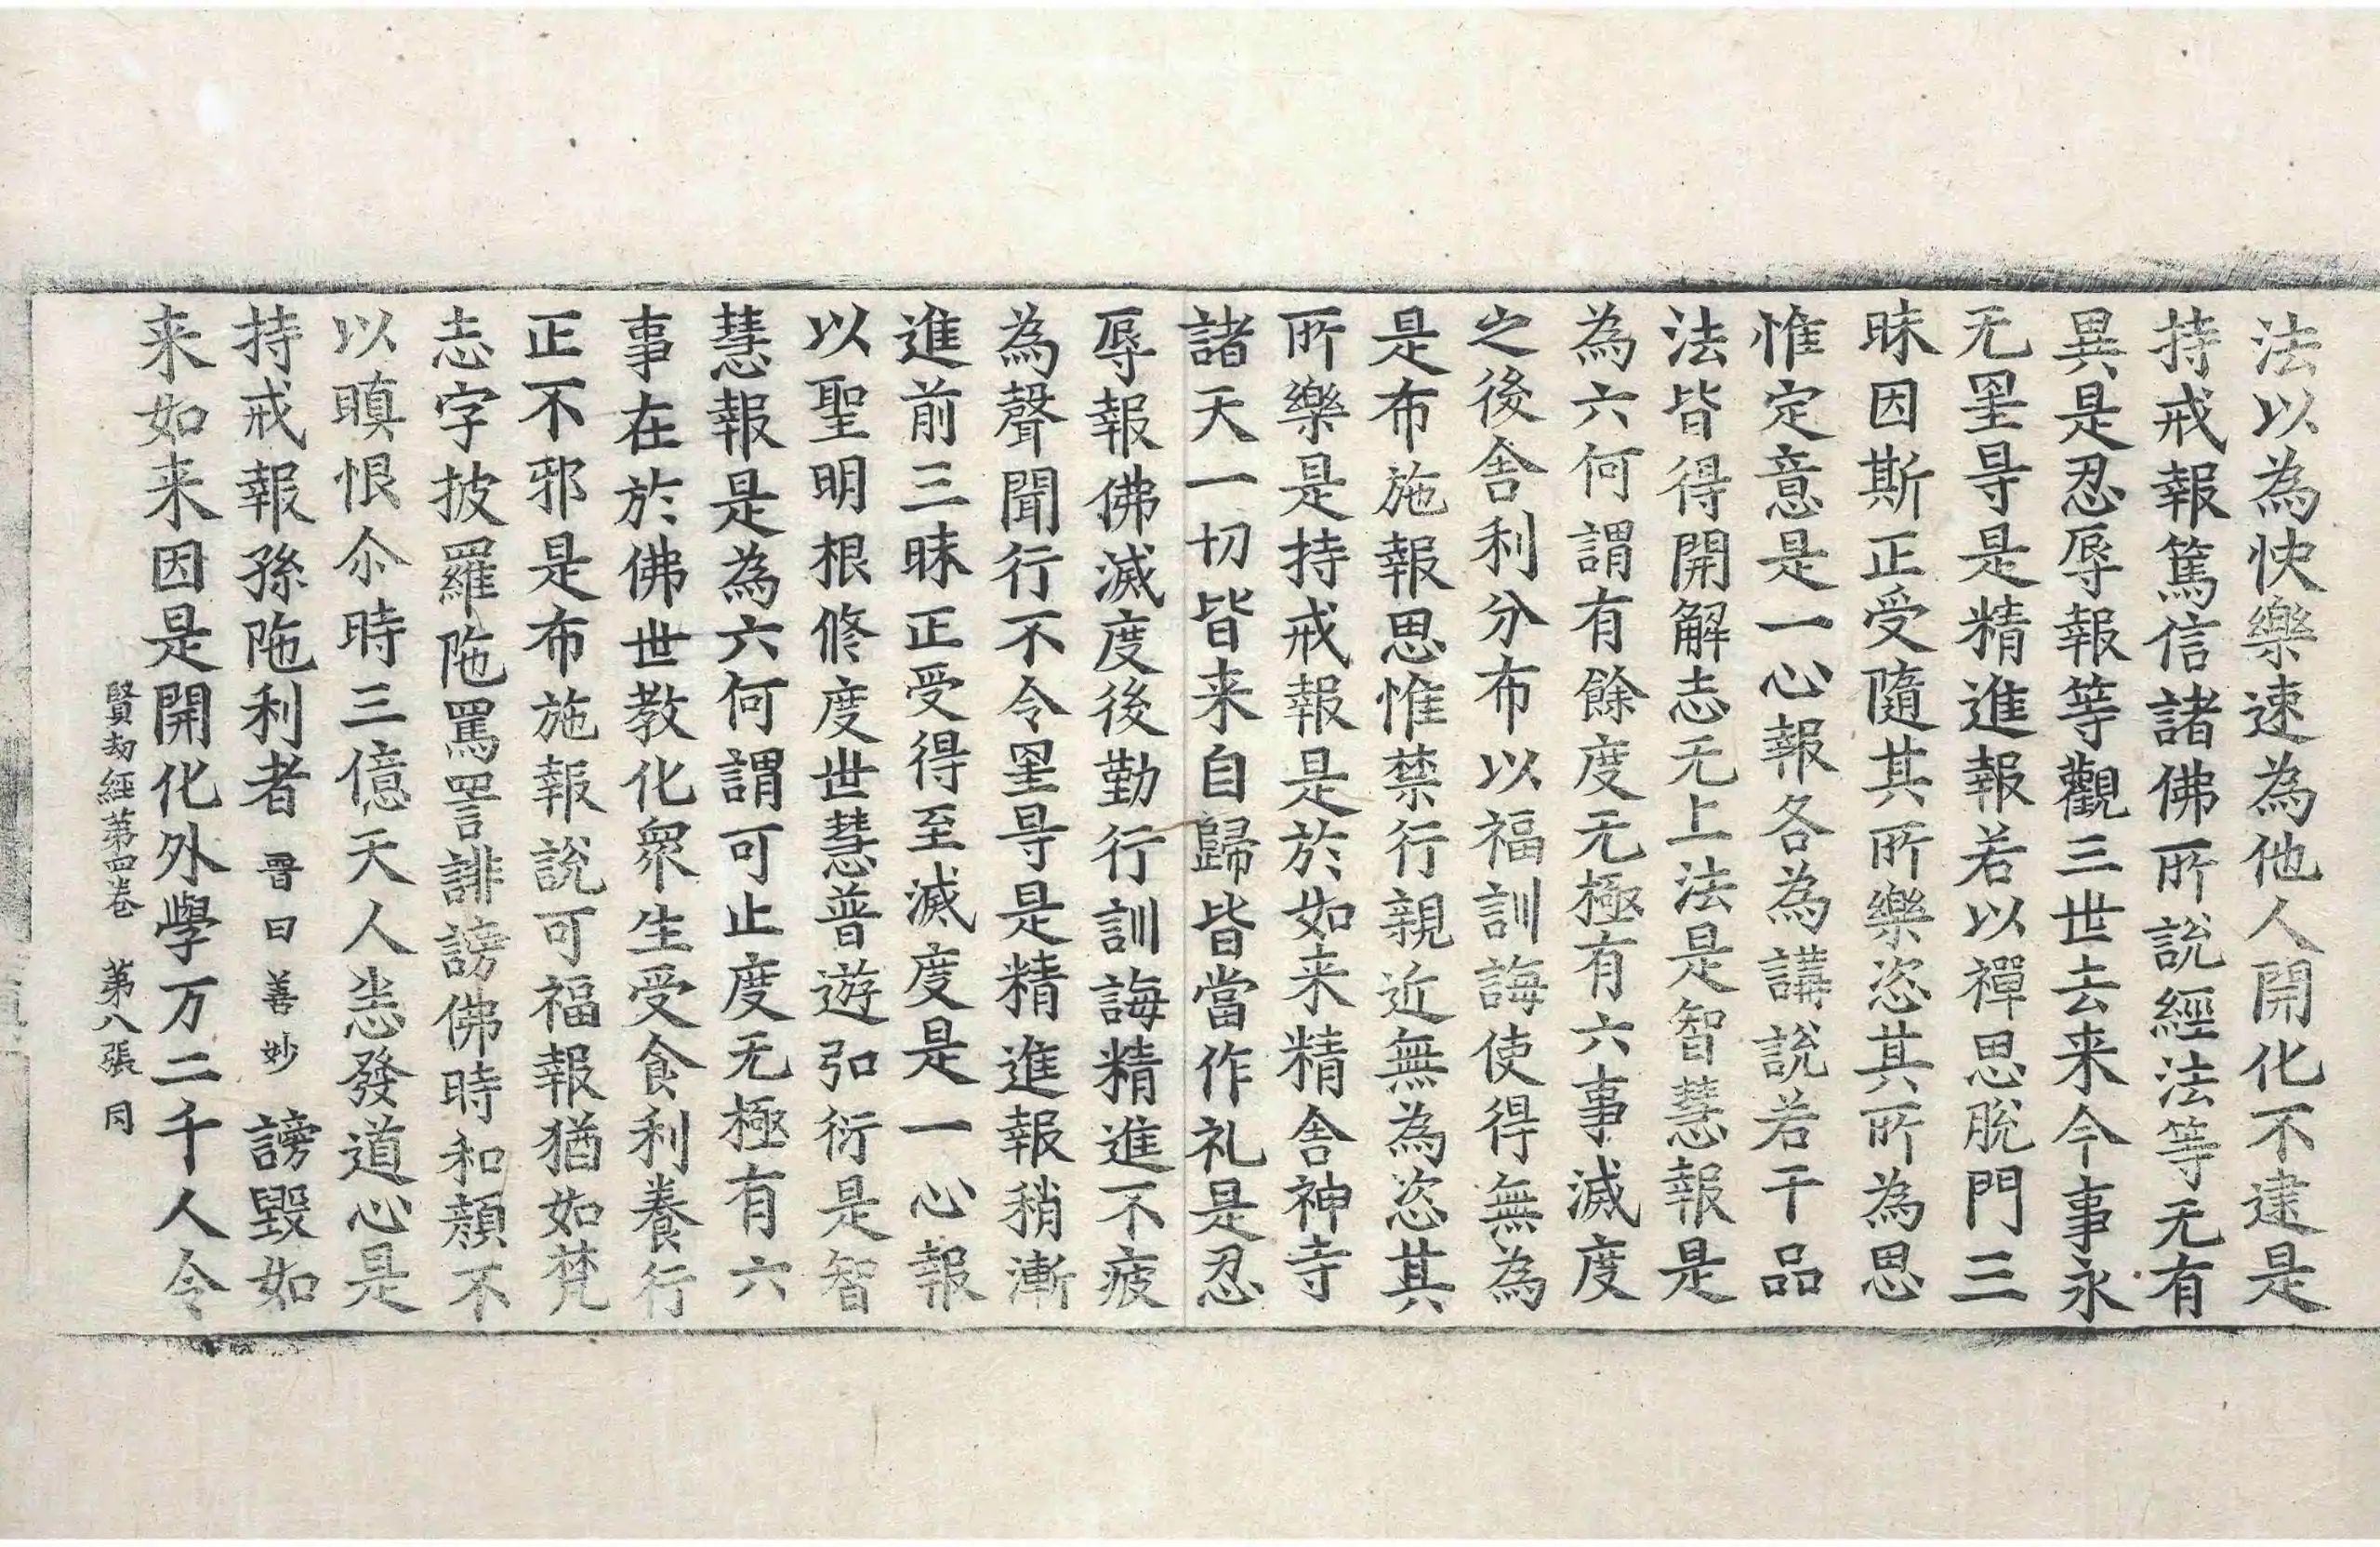 法以為快樂速為他人開化不逮是
持戒報篤信諸佛所說經法等无有
異是忍辱報等觀三世去来今事永
无罣㝵是精進報若以禪思脫門三
昧因斯正受隨其所樂恣其所為思
惟定意是一心報各為講說若干品
法皆得開解志无上法是智慧報是
為六何謂有餘度无極有六事滅度
之後舍利分布以福訓誨使得無為
是布施報思惟禁行親近無為恣其
所樂是持戒報是於如来精舍神寺
諸天一切皆来自歸皆當作礼是忍
辱報佛滅度後勤行訓誨精進不疲
為聲聞行不令罣㝵是精進報稍漸
進前三昧正受得至滅度是一心報
以聖明根修度世慧普遊弘衍是智
慧報是為六何謂可止度无極有六
事在於佛世教化衆生受食利養行
正不邪是布施報說可福報猶如梵
志字披羅陁罵詈誹謗佛時和顏不
以瞋恨尒時三億天人恙發道心是
持戒報孫陁利者晋曰善妙謗毀如
来如来因是開化外學万二千人令
賢劫經第四卷 第八張 同